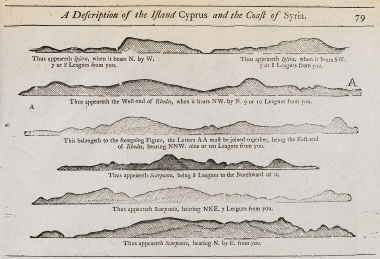 A Description of the Island Cyprus and the Coast of Syria. 79
Thus appeareth Ipira, when it bears N. by W.
7 or 8 Leagues from you.
Thus appeareth Ipira, when it bears SW.
7 or 8 Leagues from you.
A
Thus appeareth the West-end of Rhodes, when it bears NW. by N. 9 or 10 Leagues from you.
A
This belongeth to the foregoing Figure, the Letters AA must be joined together, being the East-end
of Rhodes, bearing NNW. nine or ten Leagues from you.
Thus appeareth Scarpanto, being 8 Leagues to the Northward of it.
Thus appeareth Scarpanto, bearing NNE. 7 Leagues from you.
Thus appeareth Scarpanto, bearing N. by E. from you.